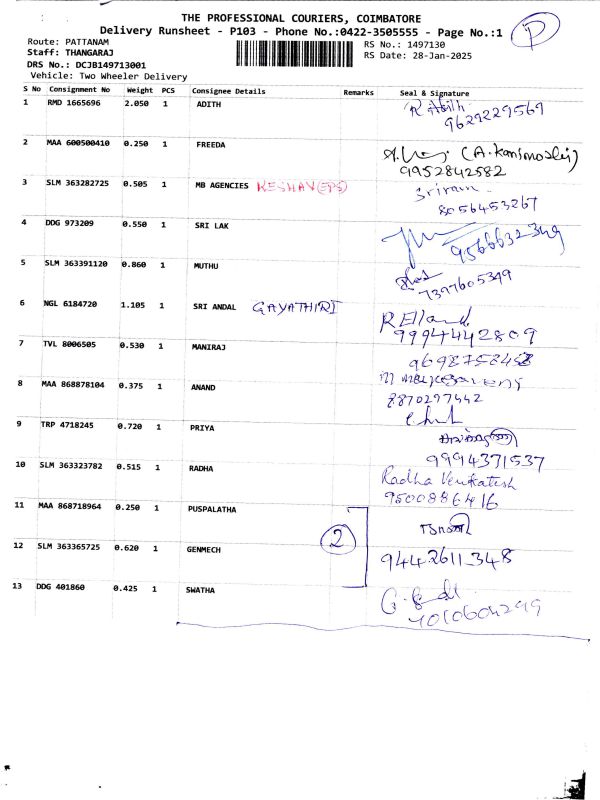 THE PROFESSIONAL COURIERS, COIMBATORE
Delivery Runsheet - P103 - Phone No.:0422-3505555 - Page No.:1
P
Route: PATTANAM
RS No.: 1497130
Staff: THANGARAJ
RS Date: 28-Jan-2025
DRS No.: DCJB149713001
Vehicle: Two Wheeler Delivery
S No Consignment No Weight PCS Consignee Details Remarks Seal & Signature
1 RMD 1665696 2.050 1 ADITH
9629229569
2 MAA 600500410 0.250 1 FREEDA
(A. Kanimozhi)
9952842582
3 SLM 363282725 0.505 1 MB AGENCIES KESHAV(EPS) Sriram
8056453267
4 DDG 973209 0.550 1 SRI LAK
9566632349
5 SLM 363391120 0.860 1 MUTHU
7397605349
6 NGL 6184720 1.105 1 SRI ANDAL GAYATHIRI
9994442809
7 TVL 8006505 0.530 1 MANIRAJ
8 MAA 868878104 0.375 1 ANAND
8870297442
9 TRP 4718245 0.720 1 PRIYA
9994371537
10 SLM 363323782 0.515 1 RADHA Radha Venkatesh
9500886416
11 MAA 868718964 0.250 1 PUSPALATHA
2
12 SLM 363365725 0.620 1 GENMECH 9442611348
13 DDG 401860 0.425 1 SWATHA